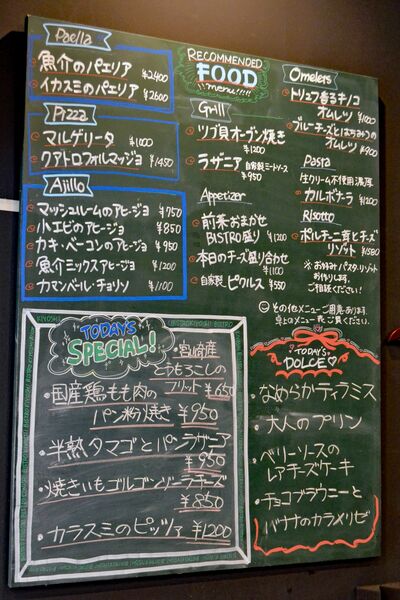 Paella
魚介のパエリア ¥2400
イカスミのパエリア ¥2600
Pizza
マルゲリータ ¥1000
クアトロフォルマッジョ ¥1450
Ajillo
マッシュルームのアヒージョ ¥750
小エビのアヒージョ ¥850
カキ・ベーコンのアヒージョ ¥950
魚介ミックスアヒージョ ¥1200
カマンベール・チョリソ ¥1100
RECOMMENDED
FOOD
menu!!!!
Grill
ツブ貝オーブン焼き
¥1200
ラザニア 自家製ミートソース
¥950
Appetizer
前菜おまかせ
BISTRO盛り ¥1200
本日のチーズ盛り合わせ
¥1100
自家製 ピクルス ¥550
Omelets
トリュフ香るキノコ
オムレツ ¥1000
ブルーチーズとはちみつの
オムレツ ¥900
Pasta
生クリーム不使用濃厚
カルボナーラ ¥1200
Risotto
ポルチーニ茸とチーズ
リゾット ¥1580
※ お好みパスタ・リゾット
お作りします。
ご相談ください!
その他メニューご用意あります。
卓上のメニュー表ご覧ください。
TODAY'S
SPECIAL!
・宮崎産
とうもろこしの
フリット ¥650
・国産鶏もも肉の
パン粉焼き ¥950
・半熟タマゴとパンラザニア
¥950
・焼きいもゴルゴンゾーラチーズ
¥850
・カラスミのピッツァ ¥1200
TODAY'S
DOLCE
・なめらかティラミス
・大人のプリン
・ベリーソースの
レアチーズケーキ
・チョコブラウニーと
バナナのカラメリゼ